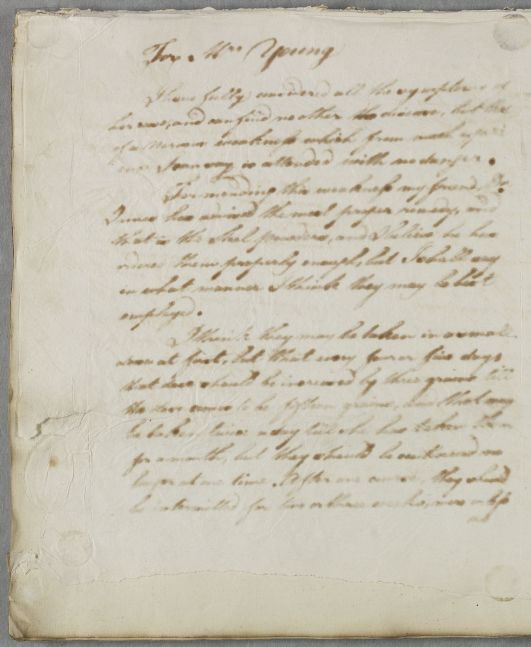 For Mrs Young
I have fully considered all the symptoms of
her case, and can find no other the disease, but that
of a Nervous weakness which from much
I can say is attended with no danger.
For mending this weakness my friend Dr.
Innes has advised the most proper remedy, and
that is the Steel powders, and I believe he has
them properly enough, but I shall say
in what manner I think they may be best
employed.
I think they may be taken in a small
dose at first, but that every four or five days
that dose should be increased by three grains till
the dose comes to be fifteen grains, and that may
be taken twice a day till she has taken them
for a month, but they should be continued no
longer at one time. After one course, they should
be intermitted for two or three weeks, more or less